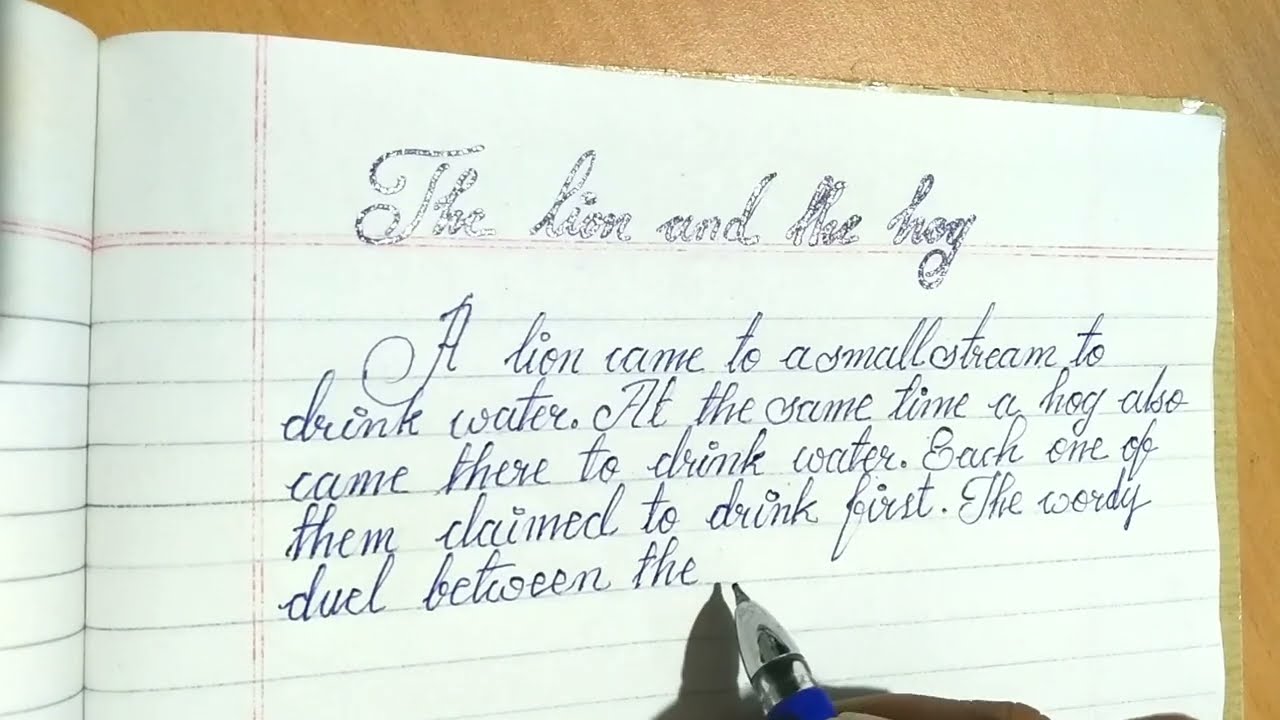 The lion and the hog
A lion came to a small stream to
drink water. At the same time a hog also
came there to drink water. Each one of
them claimed to drink first. The wordy
duel between the